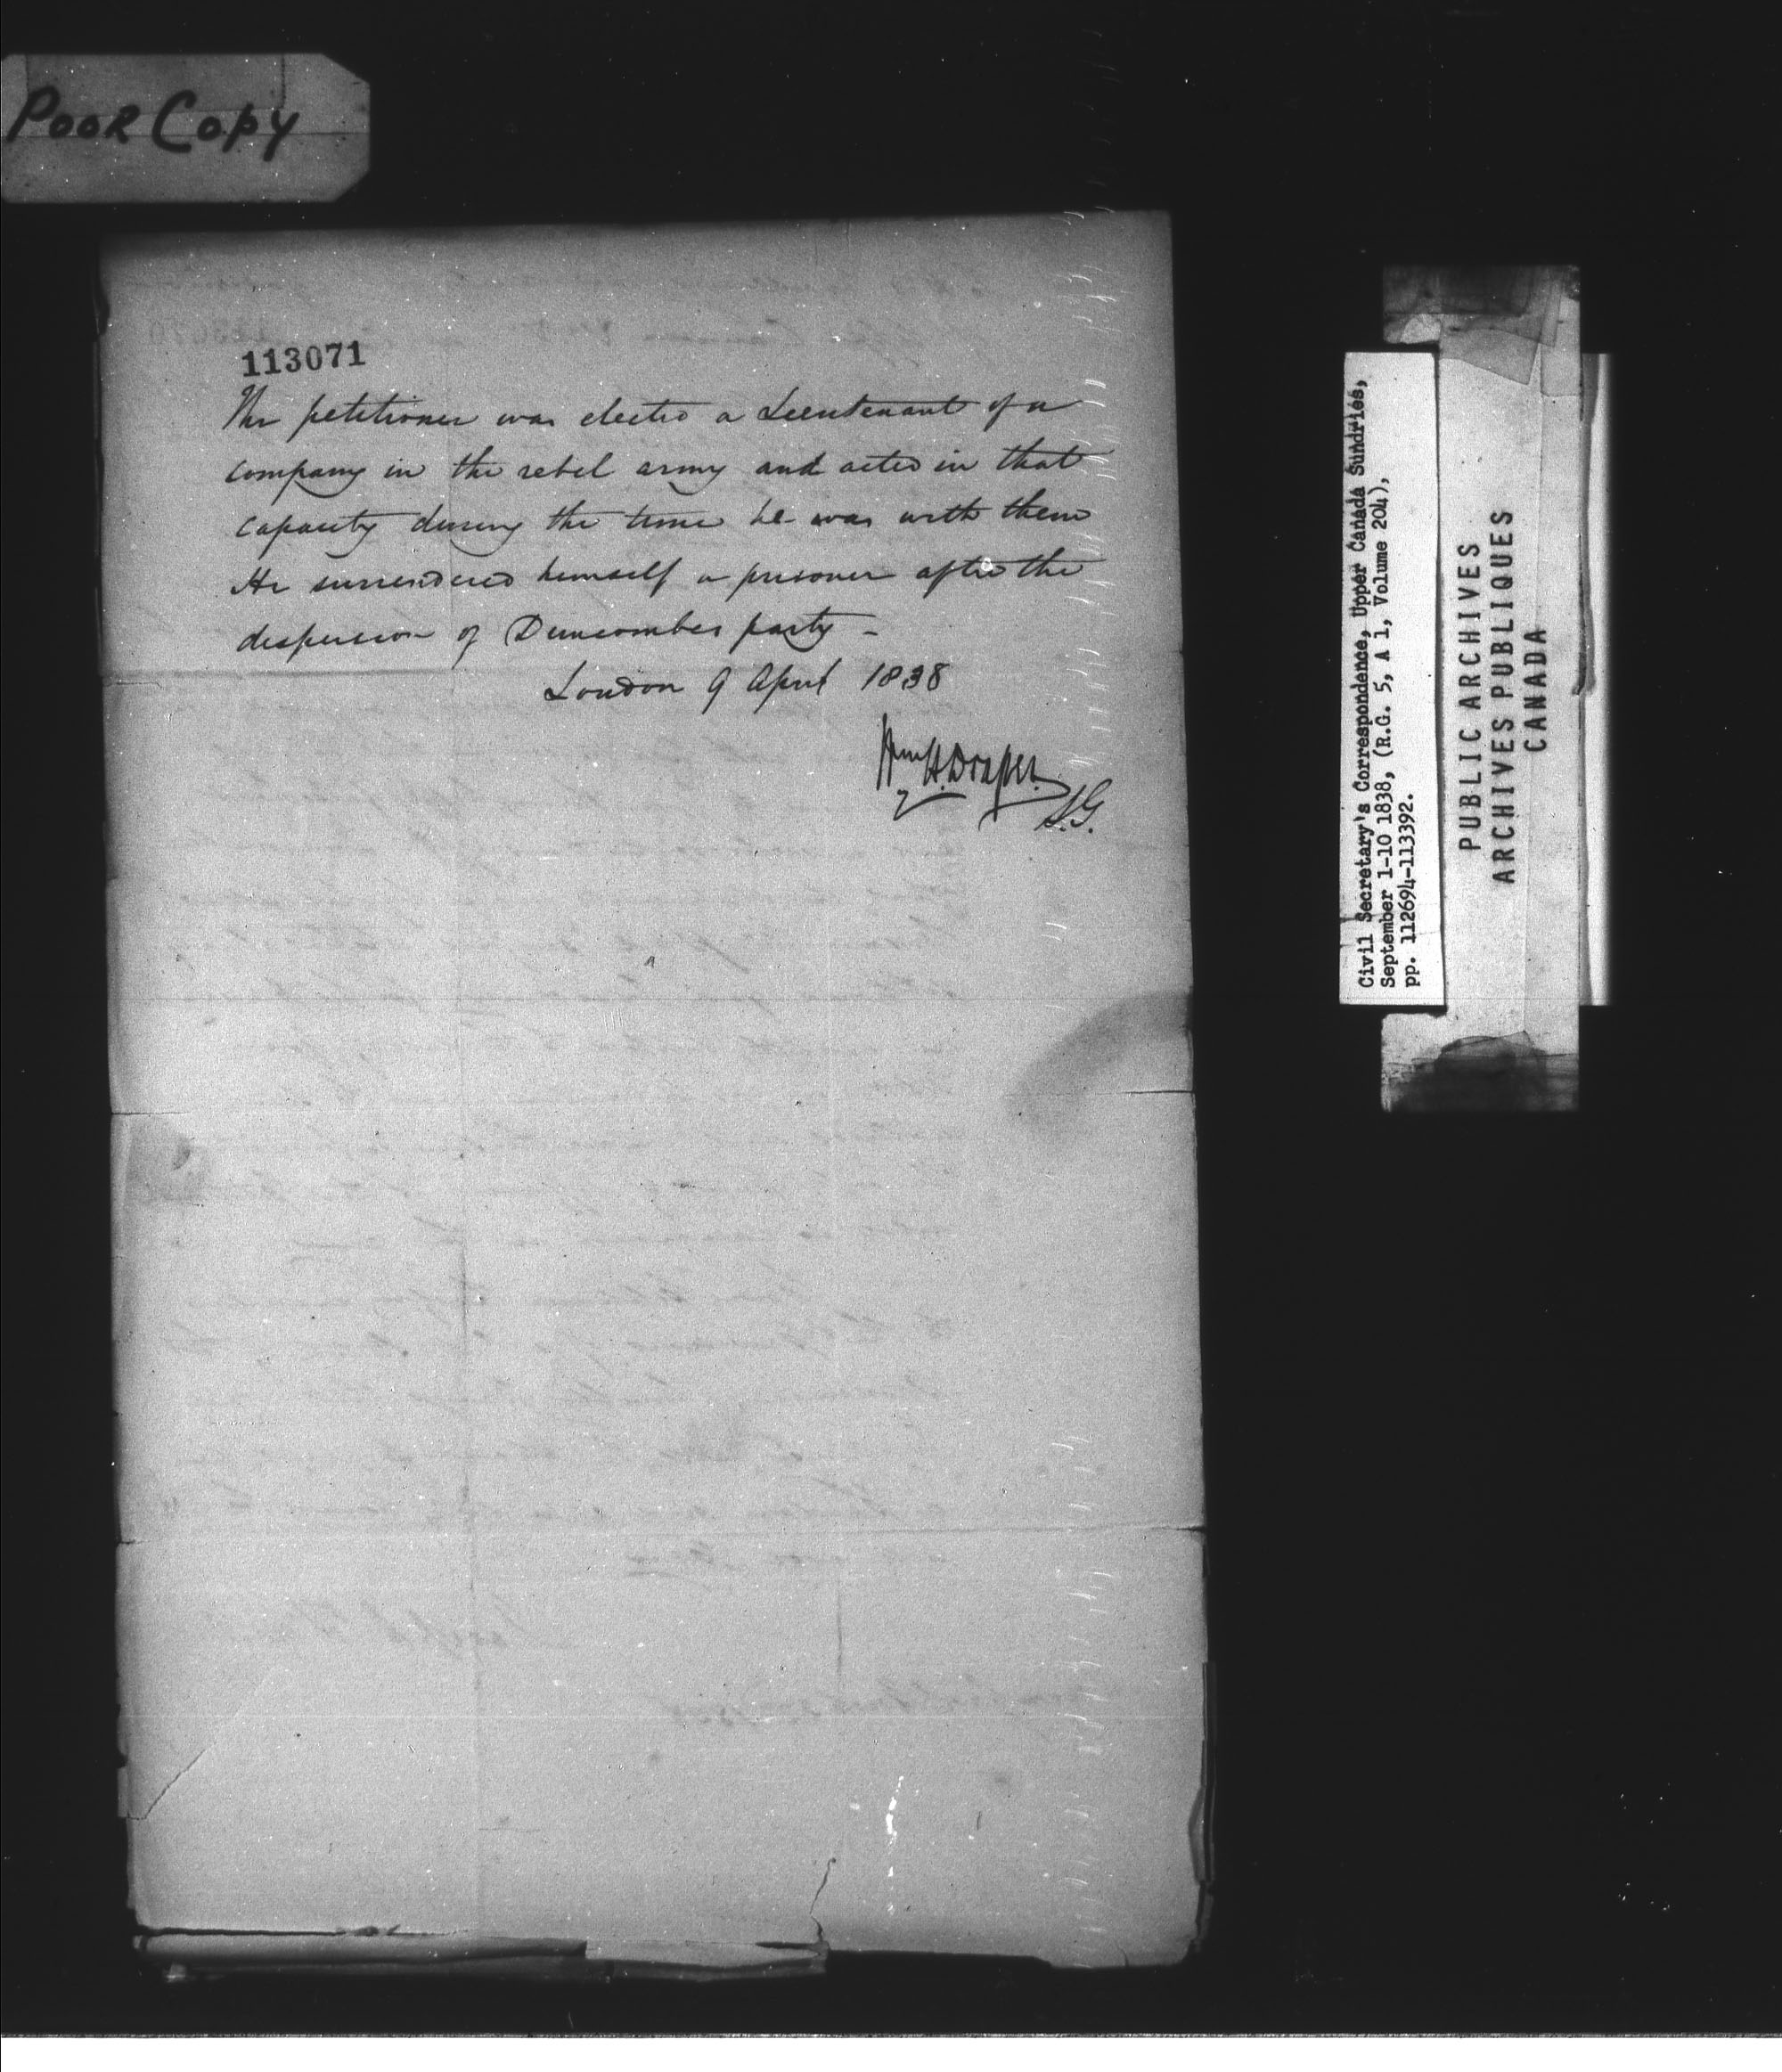 Poor Copy
113071
The petitioner was elected a Lieutenant of a
company in the rebel army and acted in that
capacity during the time he was with them
He surrendered himself a prisoner after the
dispersion of Duncombes party -
London 9 April 1838
Wm H. Draper.
S.G.
Civil Secretary's Correspondence, Upper Canada Sundries,
September 1-10 1838, (R.G. 5, A 1, Volume 204),
pp. 112694-113392.
PUBLIC ARCHIVES
ARCHIVES PUBLIQUES
CANADA